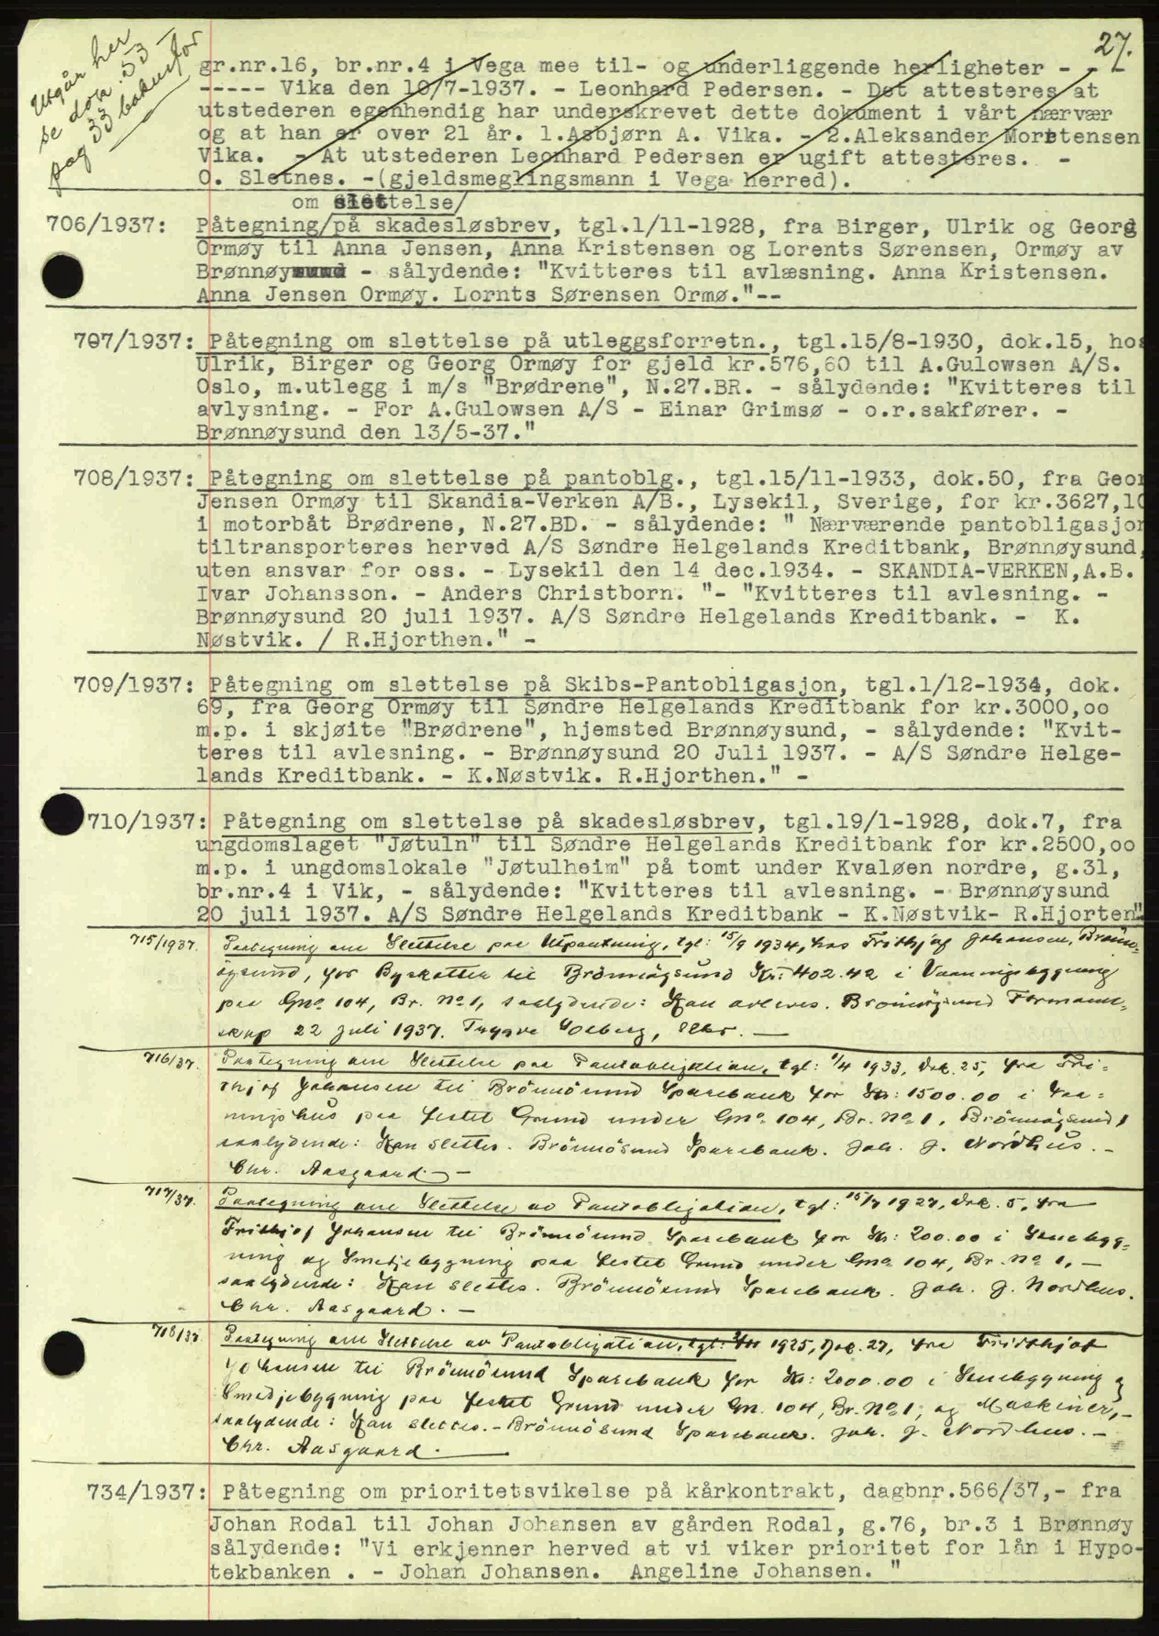 27.
Utgår her
se dok. 53
pag 33 bakenfor
gr.nr.16, br.nr.4 i Vega mee til- og underliggende herligheter - - -
----- Vika den 10/7-1937. - Leonhard Pedersen. - Det attesteres at
utstederen egenhendig har underskrevet dette dokument i vårt nærvær
og at han er over 21 år. 1.Asbjørn A. Vika. - 2.Aleksander Mortensen
Vika. - At utstederen Leonhard Pedersen er ugift attesteres. -
O. Sletnes. -(gjeldsmeglingsmann i Vega herred).
om slettelse/
706/1937: Påtegning/på skadesløsbrev, tgl.1/11-1928, fra Birger, Ulrik og Georg
Ormøy til Anna Jensen, Anna Kristensen og Lorents Sørensen, Ormøy av
Brønnøy - sålydende: "Kvitteres til avlæsning. Anna Kristensen.
Anna Jensen Ormøy. Lornts Sørensen Ormø."--
707/1937: Påtegning om slettelse på utleggsforretn., tgl.15/8-1930, dok.15, hos
Ulrik, Birger og Georg Ormøy for gjeld kr.576,60 til A.Gulowsen A/S.
Oslo, m.utlegg i m/s "Brødrene", N.27.BR. - sålydende: "Kvitteres til
avlysning. - For A.Gulowsen A/S - Einar Grimsø - o.r.sakfører. -
Brønnøysund den 13/5-37."
708/1937: Påtegning om slettelse på pantoblg., tgl.15/11-1933, dok.50, fra Geor
Jensen Ormøy til Skandia-Verken A/B., Lysekil, Sverige, for kr.3627,10
i motorbåt Brødrene, N.27.BD. - sålydende: " Nærværende pantobligasjon
tiltransporteres herved A/S Søndre Helgelands Kreditbank, Brønnøysund,
uten ansvar for oss. - Lysekil den 14 dec.1934. - SKANDIA-VERKEN,A.B.
Ivar Johansson. - Anders Christborn. "- "Kvitteres til avlesning. -
Brønnøysund 20 juli 1937. A/S Søndre Helgelands Kreditbank. - K.
Nøstvik. / R.Hjorthen." -
709/1937: Påtegning om slettelse på Skibs-Pantobligasjon, tgl.1/12-1934, dok.
69, fra Georg Ormøy til Søndre Helgelands Kreditbank for kr.3000,oo
m.p. i skjøite "Brødrene", hjemsted Brønnøysund, - sålydende: "Kvit-
teres til avlesning. - Brønnøysund 20 Juli 1937. - A/S Søndre Helge-
lands Kreditbank. - K.Nøstvik. R.Hjorthen." -
710/1937: Påtegning om slettelse på skadesløsbrev, tgl.19/1-1928, dok.7, fra
ungdomslaget "Jøtuln" til Søndre Helgelands Kreditbank for kr.2500,oo
m.p. i ungdomslokale "Jøtulheim" på tomt under Kvaløen nordre, g.31,
br.nr.4 i Vik, - sålydende: "Kvitteres til avlesning. - Brønnøysund
20 juli 1937. A/S Søndre Helgelands Kreditbank - K.Nøstvik- R.Hjorten"
715/1937. Paategning om Slettelse paa Utpantning, tgl: 15/9 1934, hos Frithjof Johansen, Brönn-
öysund, for Byskatter til Brönnöysund Kr: 402.42 i Vaaningsbygning
paa Gno 104, Br. No 1, saalydende: Kan avleses. Brönnöysund Formann-
skap 22 juli 1937. Trygve Solberg,
716/37. Paategning om Slettelse paa Pantobligation, tgl: 1/4 1933, Dok. 25, fra Fri-
thjof Johansen til Brönnösund Sparebank for Kr: 1500.00 i Vaa-
ningshus paa festet Grund under Gno 104, Br. No 1, Brönnöysund,
saalydende: Kan slettes. Brönnösund Sparebank. Joh. J. Nordhus. -
Chr. Aasgaard -
717/37. Paategning om Slettelse av Pantobligation, tgl: 15/7 1927, Dok. 5, fra
Frithjof Johansen til Brönnösund Sparebank for Kr: 200.00 i Stuebygg-
ning og Smedjebygning paa festet Grund under Gno 104, Br. No 1, -
saalydende: Kan slettes. Brönnösund Sparebank. Joh. J. Nordhus.
Chr. Aasgaard. -
718/37 Paategning om Slettelse av Pantobligation, tgl: 1925, Dok. 27, fra Fridthjof
Johansen til Brönnösund Sparebank for Kr: 2000.00 i Stuebygning og
Smedjebygning paa festet Grund under Gn. 104, Br. No 1, og Maskiner, -
saalydende: Kan slettes. - Brönnösund Sparebank. Joh. J. Nordhus. -
Chr. Aasgaard.
734/1937: Påtegning om prioritetsvikelse på kårkontrakt, dagbnr.566/37,- fra
Johan Rodal til Johan Johansen av gården Rodal, g.76, br.3 i Brønnøy
sålydende: "Vi erkjenner herved at vi viker prioritet for lån i Hypo-
tekbanken . - Johan Johansen. Angeline Johansen. "